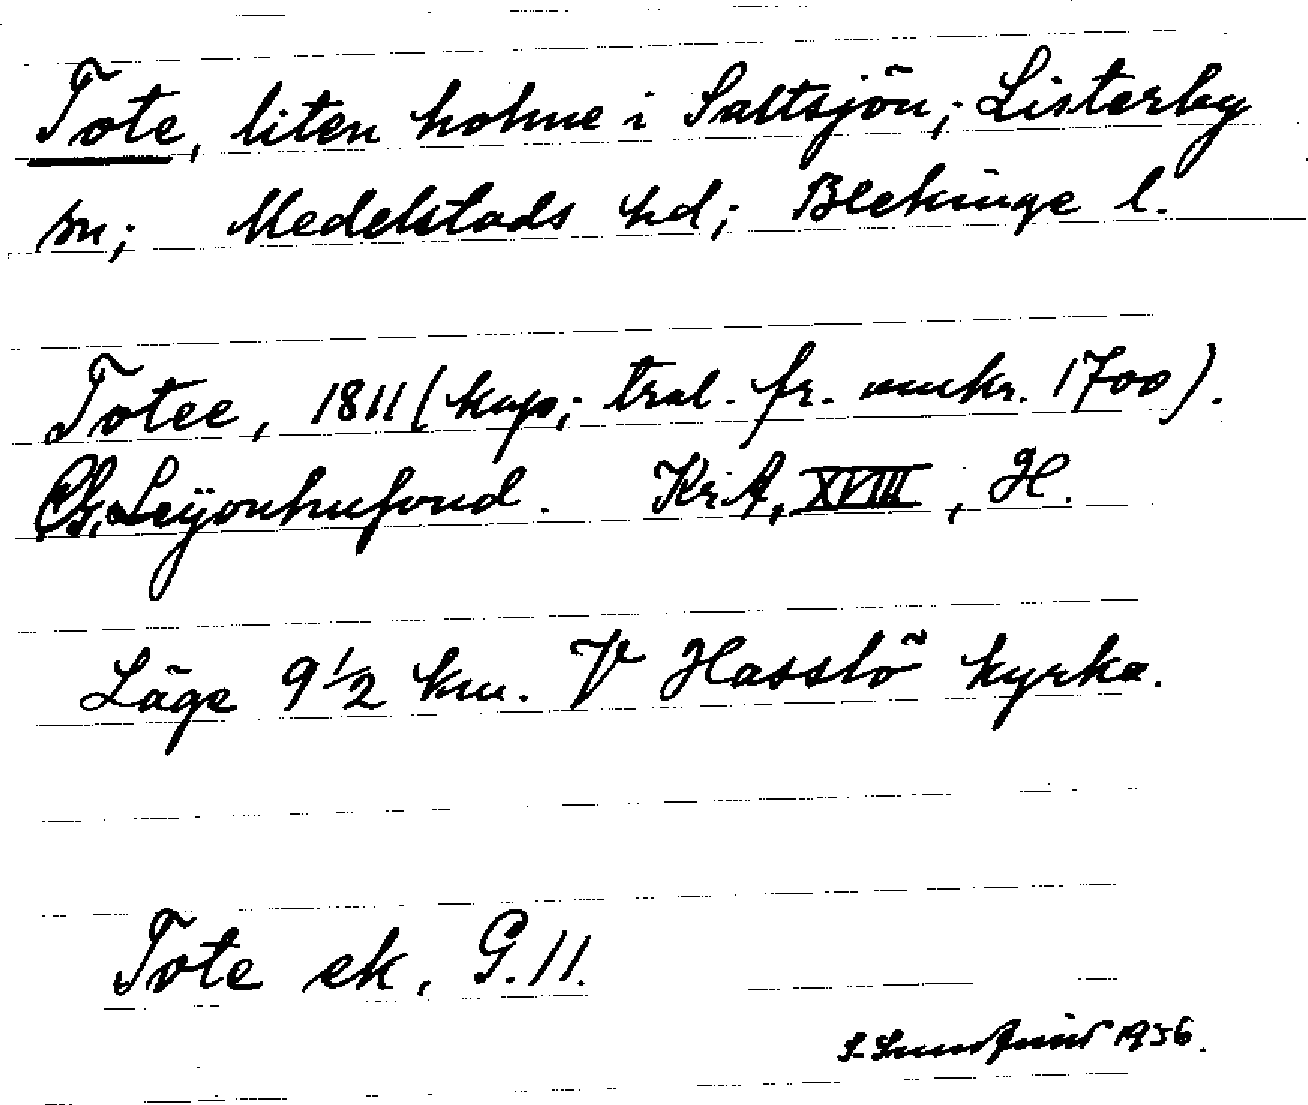 Tote, liten holme i Saltsjön; Listerby
sn; Medelstads hd; Blekinge l.
Totee, 1811 (kop; tral. fr. omkr. 1700).
Leijonhufvud. Kr.A, XVIII, H.
Läge 9 1/2 km. V Hasslö kyrka.
Tote ek. G. 11.
1956.